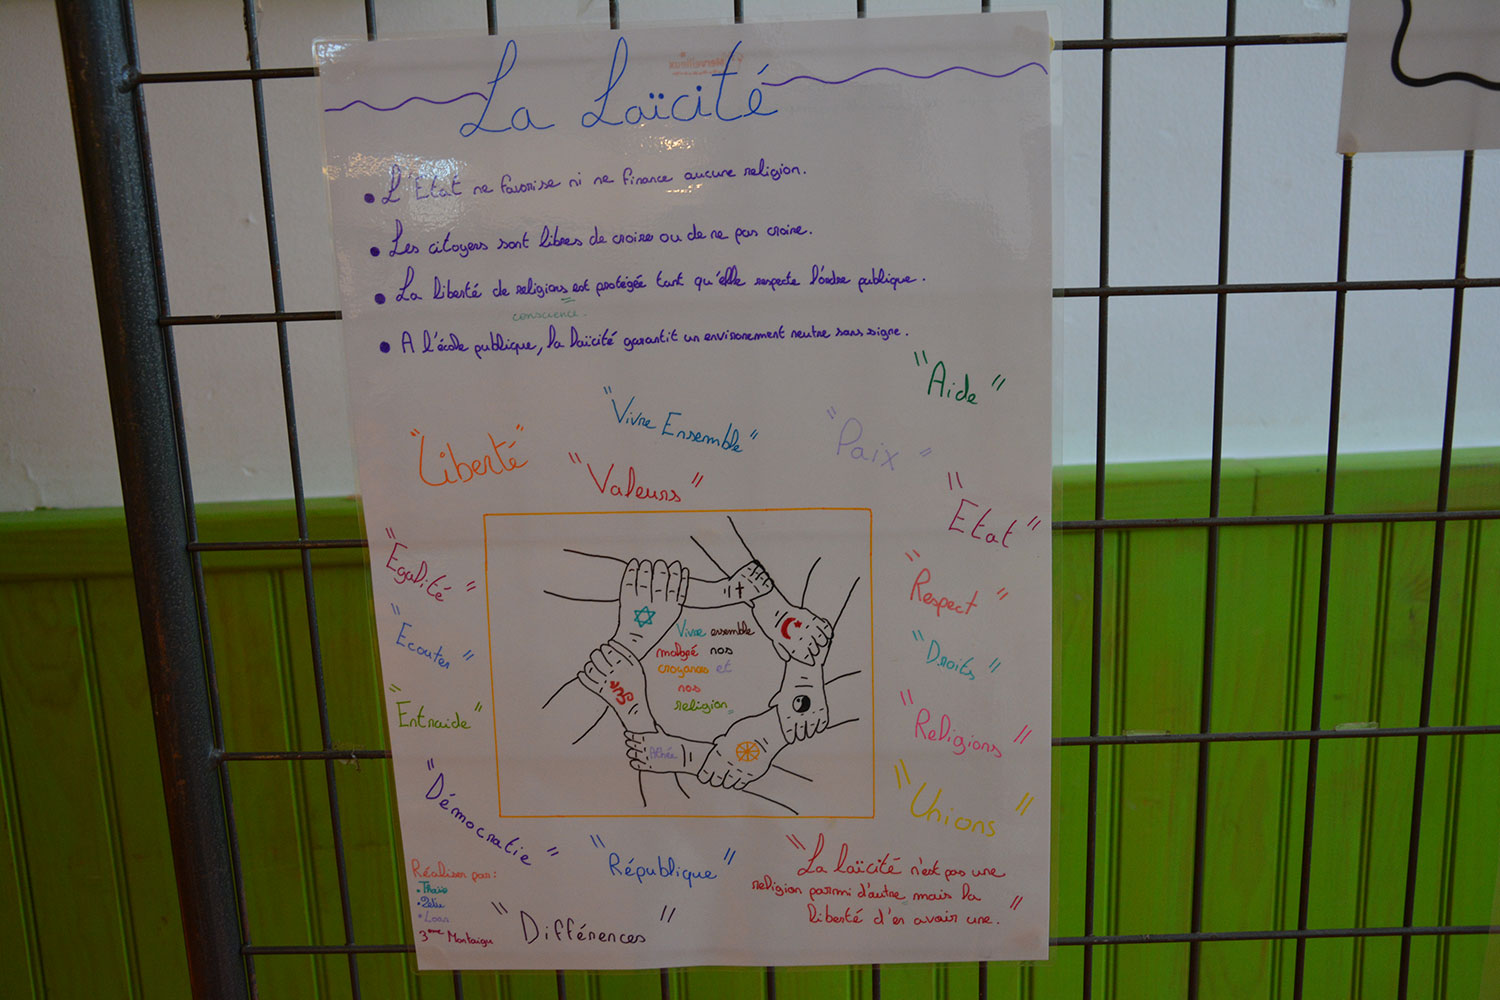 La Laïcité
• L'Etat ne favorise ni ne finance aucune religion.
• Les citoyens sont libres de croire ou de ne pas croire.
• La liberté de religions est protégée tant qu'elle respecte l'ordre publique.
conscience.
• A l'école publique, la laïcité garantit un environement neutre sans signe.
"Aide"
"Vivre Ensemble"
"Paix"
"Liberté"
"Valeurs"
"Etat"
"Egalité"
"Respect"
"Ecouter"
"Droits"
"Entraide"
"Religions"
Vivre ensemble
malgré nos
croyances et
nos
religion
Athée
"Démocratie"
"Unions"
"République"
"La laïcité n'est pas une
religion parmi d'autre, mais la
liberté d'en avoir une."
Réaliser par:
3eme Montaigu
"Différences"